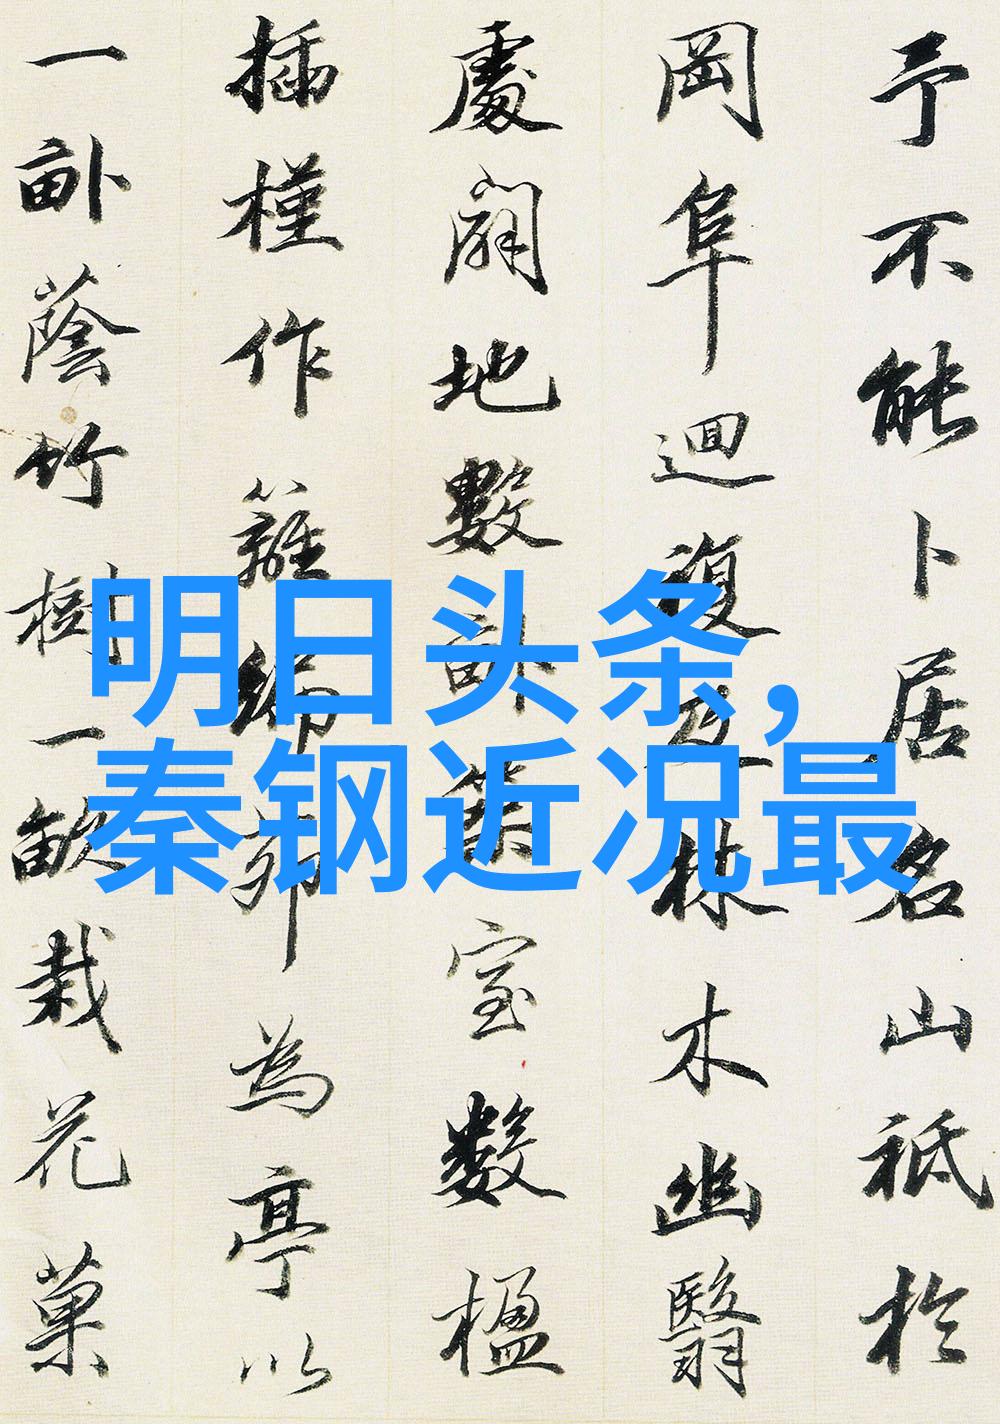 予不能卜居名山祗於
岡阜迴復及林木幽翳
處闢地數畝築室數楹
插槿作籬編茆為亭以
一畝蔭竹樹一畝栽花菓
明日头条,
秦钢近况最